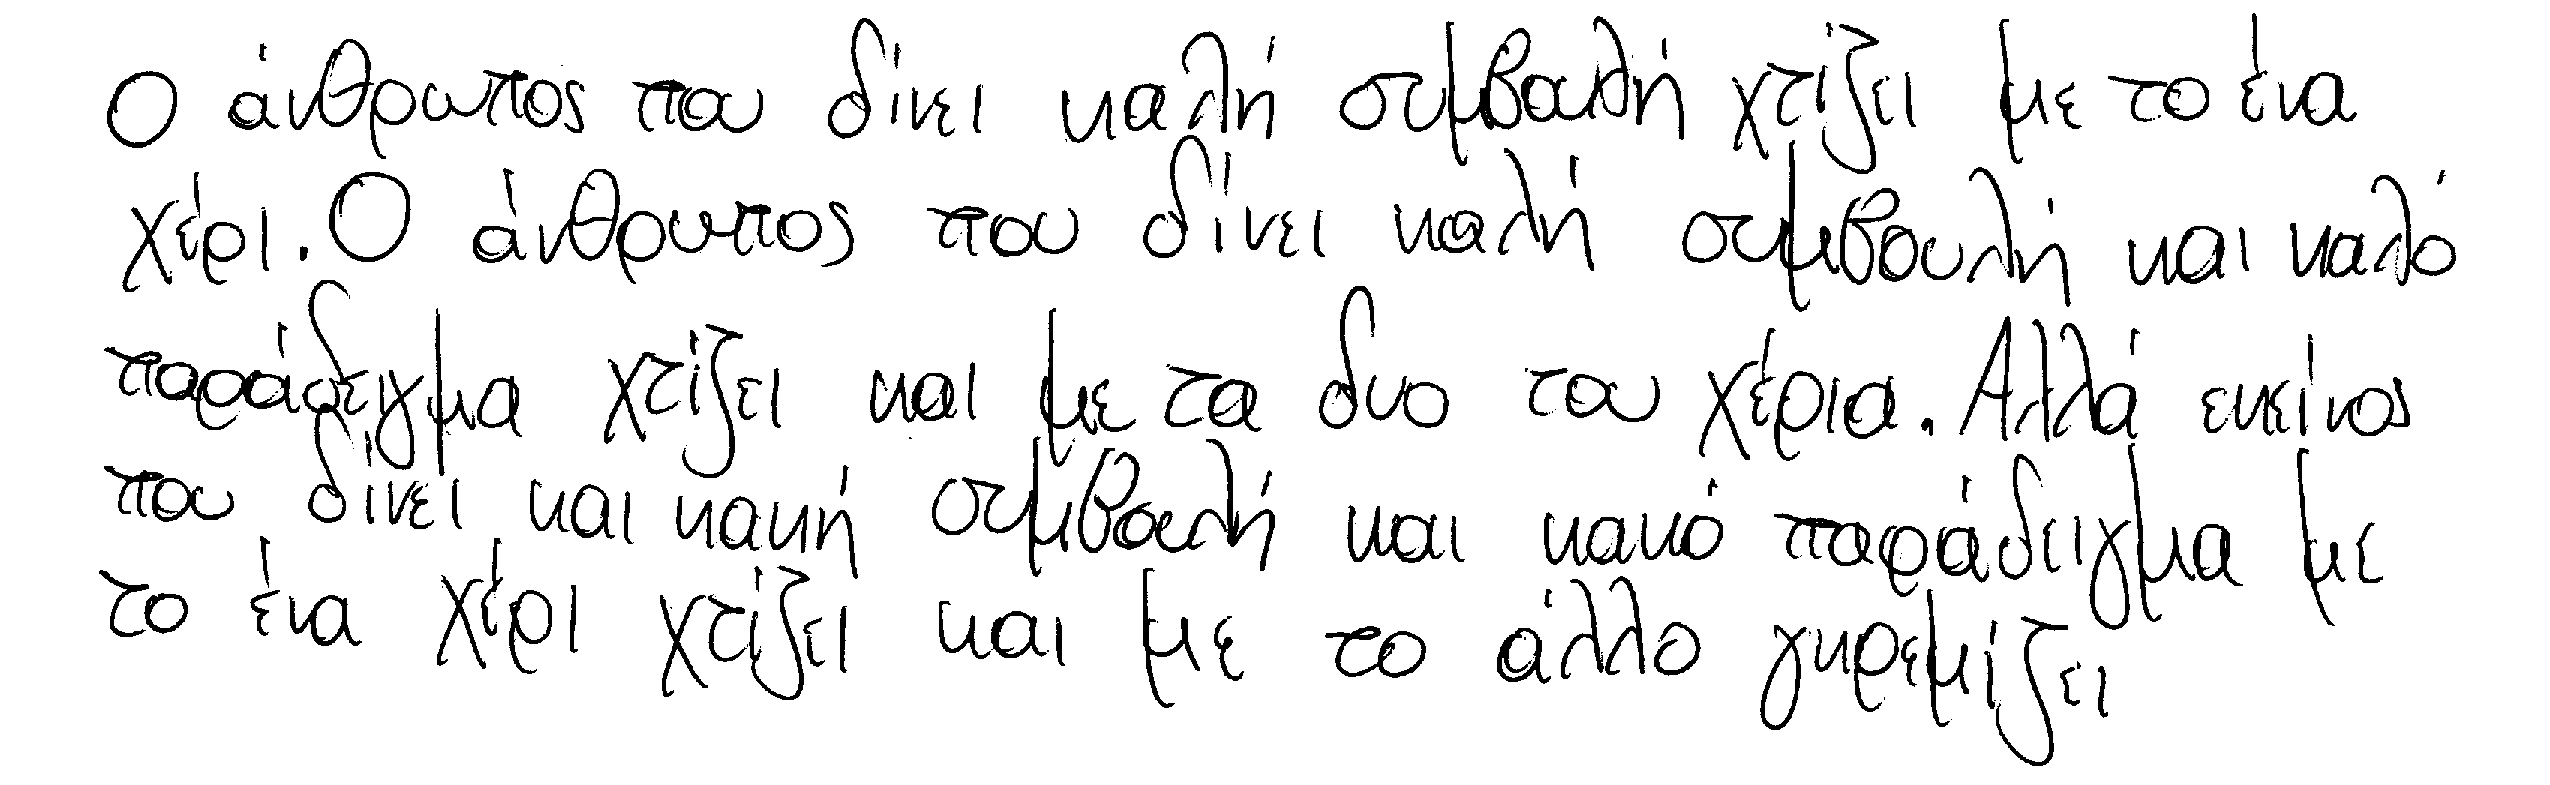 Ο άνθρωπος που δίνει καλή συμβουλή χτίζει με το ένα
χέρι. Ο άνθρωπος που δίνει καλή συμβουλή και καλό
παράδειγμα χτίζει και με τα δυο του χέρια. Αλλά εκείνος
που δίνει και κακή συμβουλή και κακό παράδειγμα με
το ένα χέρι χτίζει και με το άλλο γκρεμίζει